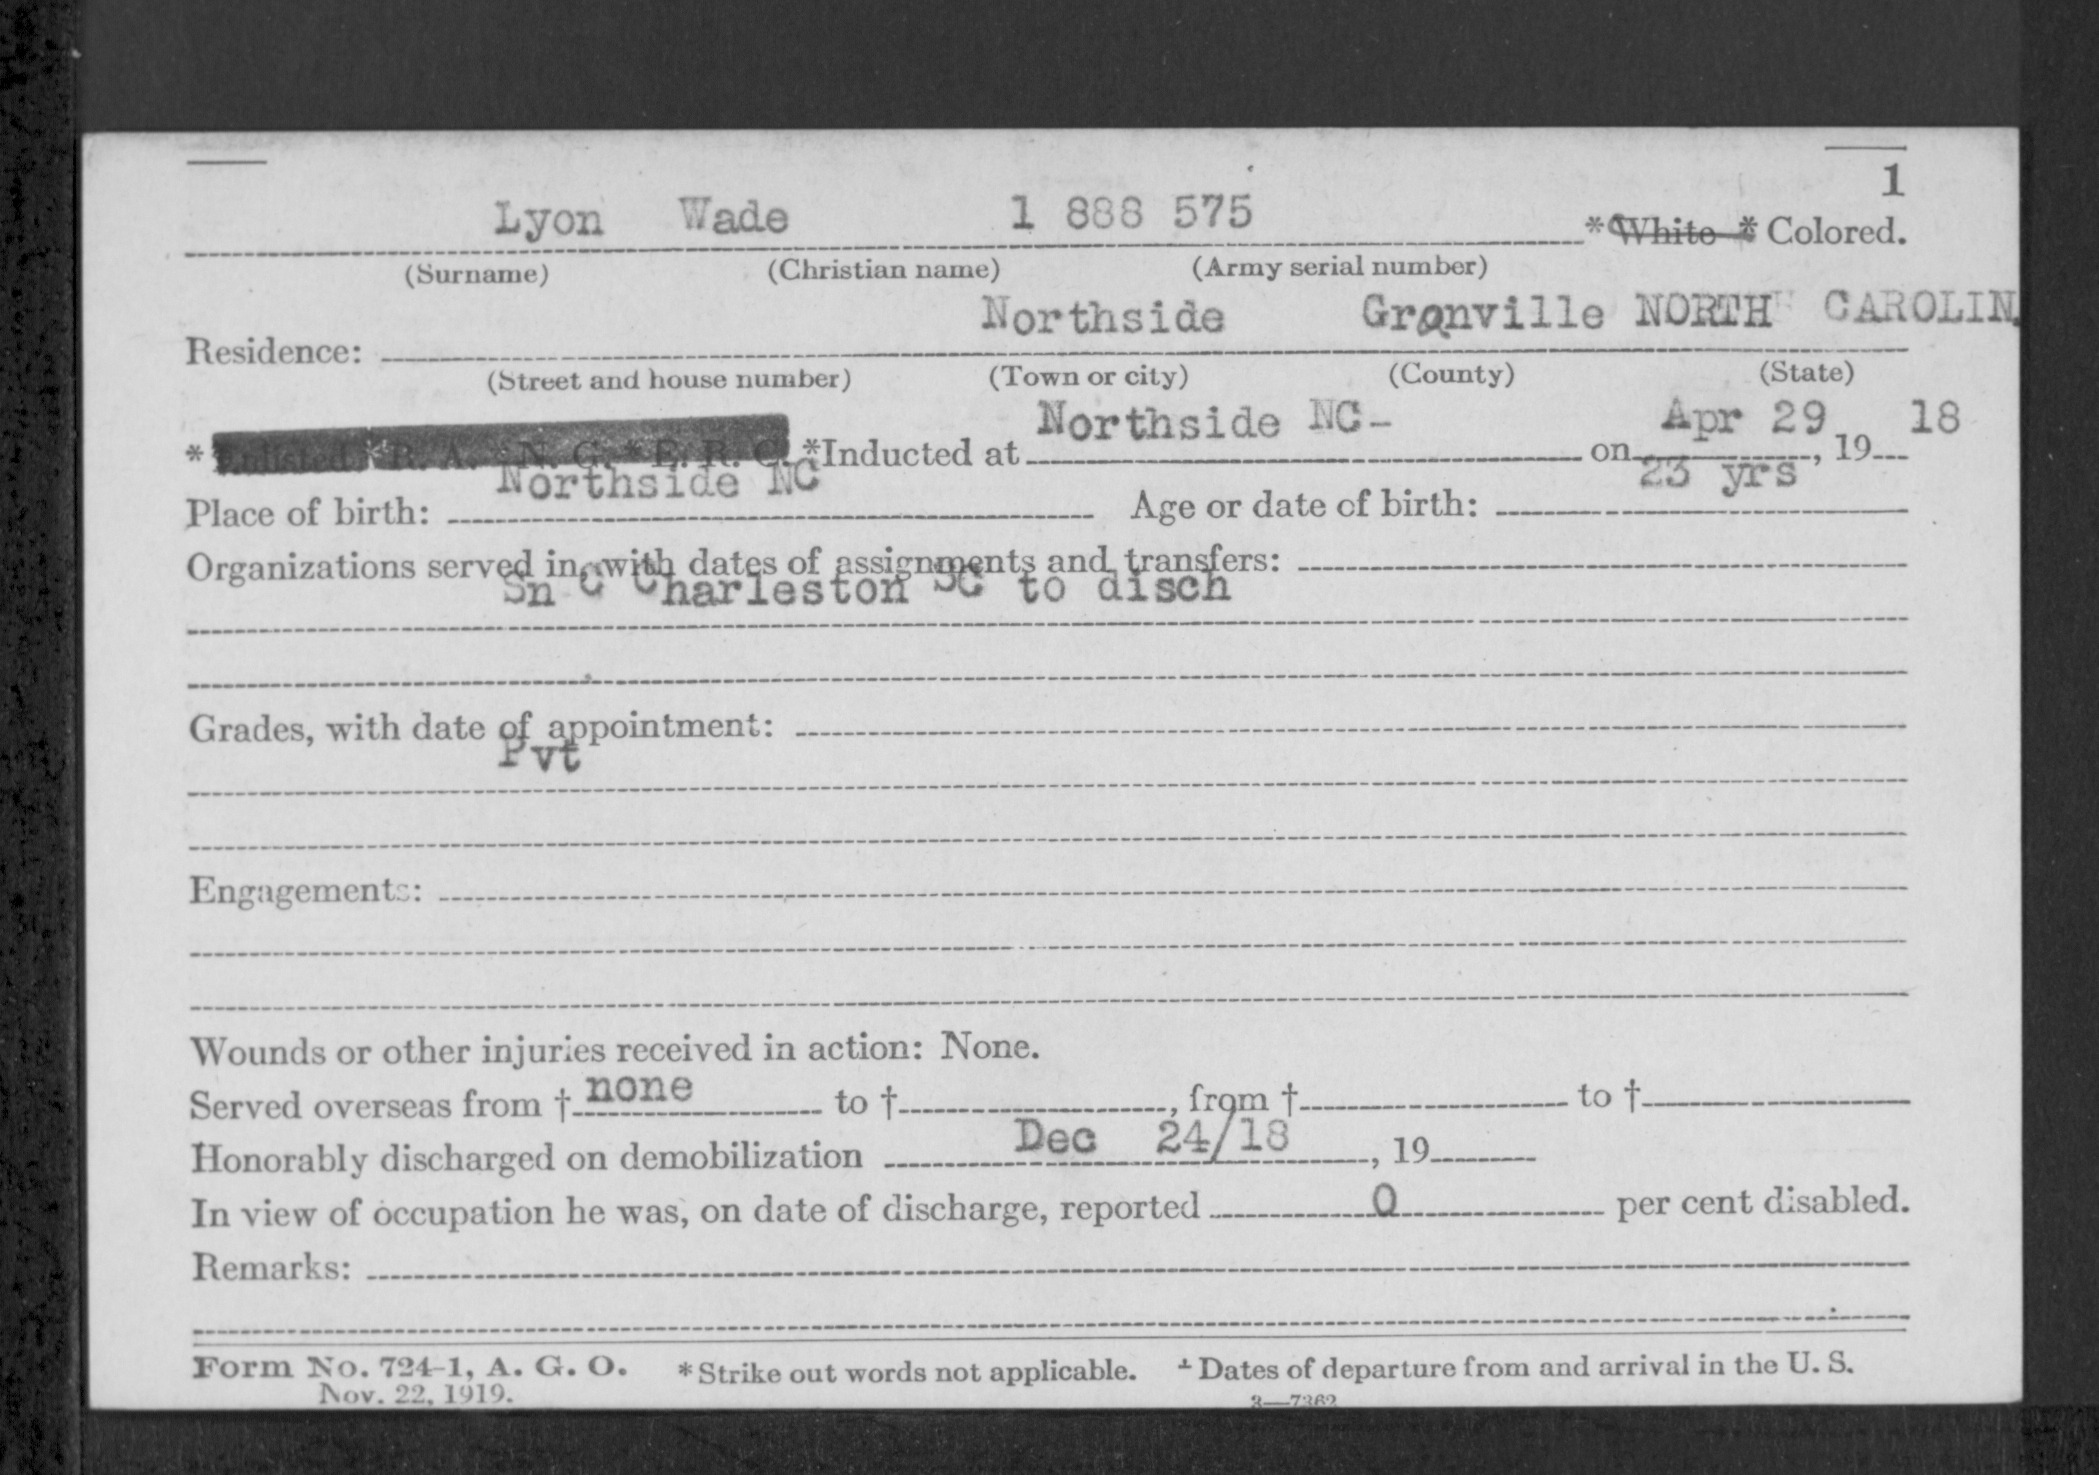 1
Lyon Wade 1 888 575 *White * Colored.
(Surname) (Christian name) (Army serial number)
Northside Granville NORTH CAROLIN
Residence:
(Street and house number) (Town or city) (County) (State)
*Enlisted *R. A. *N. G. *E. R. C. *Inducted at Northside NC- on Apr 29, 19 18
Place of birth: Northside NC Age or date of birth: 23 yrs
Organizations served in, with dates of assignments and transfers:
Sn C Charleston SC to disch
Grades, with date of appointment:
Pvt
Engagements:
Wounds or other injuries received in action: None.
Served overseas from † none to †, from † to †
Honorably discharged on demobilization Dec 24/18, 19
In view of occupation he was, on date of discharge, reported 0 per cent disabled.
Remarks:
Form No. 724-1, A. G. O. *Strike out words not applicable. † Dates of departure from and arrival in the U. S.
Nov. 22, 1919. 3—7362